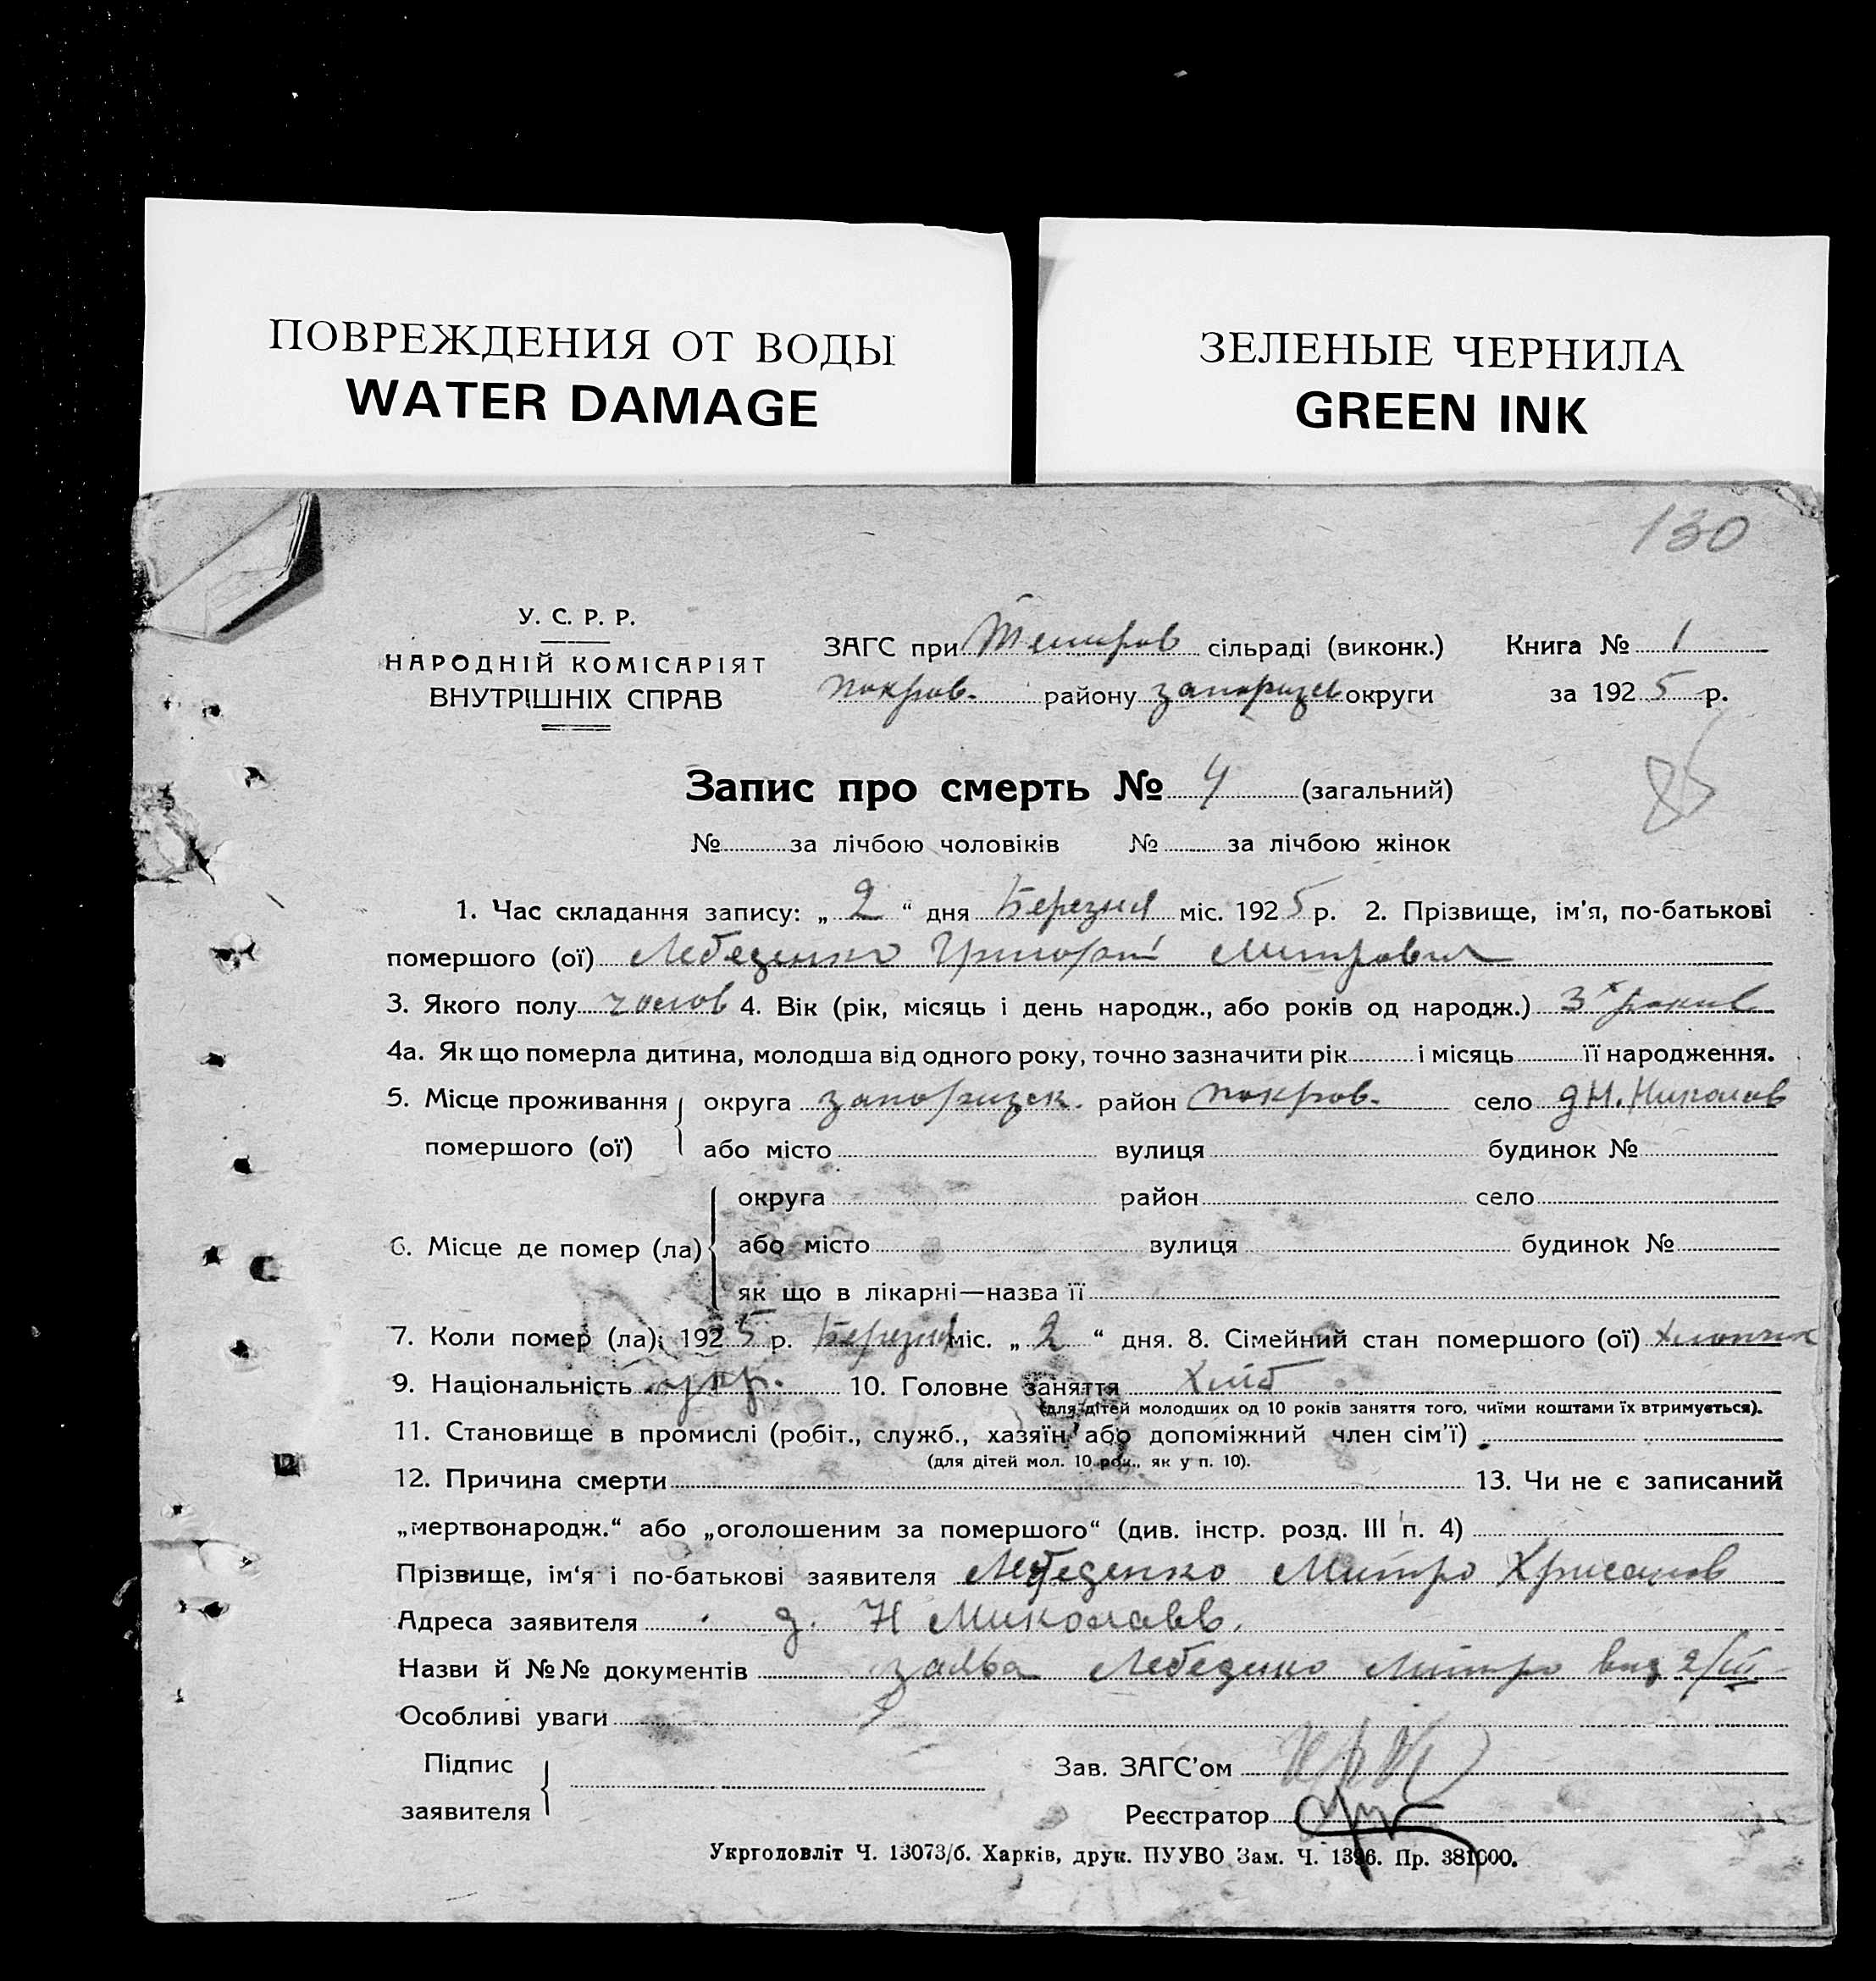 ПОВРЕЖДЕНИЯ ОТ ВОДЫ
WATER DAMAGE
ЗЕЛЕНЫЕ ЧЕРНИЛА
GREEN INK
130
У. С. Р. Р.
НАРОДНІЙ КОМІСАРІЯТ
ВНУТРІШНІХ СПРАВ
ЗАГС при Темиров сільраді (виконк.)
покров. району запоризь округи
Книга № 1
за 1925 р.
Запис про смерть № 4 (загальний)
№ за лічбою чоловіків № за лічбою жінок
1. Час складання запису: „2“ дня Березня міс. 1925 р. 2. Прізвище, ім'я, по-батькові
помершого (ої) Лебеденко Григорій Митрович
3. Якого полу чолов 4. Вік (рік, місяць і день народж., або років од народж.) 3х роков
4а. Як що померла дитина, молодша від одного року, точно зазначити рік і місяць її народження.
5. Місце проживання помершого (ої)
округа запоризек. район покров. село д Н. Николав
або місто вулиця будинок №
6. Місце де помер (ла)
округа район село
або місто вулиця будинок №
як що в лікарні—назва її
7. Коли помер (ла): 1925 р. Березня міс. „2“ дня. 8. Сімейний стан помершого (ої) хлопчик
9. Національність укр. 10. Головне заняття Хліб
(для дітей молодших од 10 років заняття того, чиїми коштами їх втримується).
11. Становище в промислі (робіт., служб., хазяїн, або допоміжний член сім'ї)
(для дітей мол. 10 рок., як у п. 10).
12. Причина смерти 13. Чи не є записаний
„мертвонародж.“ або „оголошеним за помершого“ (див. інстр. розд. III п. 4)
Прізвище, ім'я і по-батькові заявителя Лебеденко Митро Хрисанов
Адреса заявителя д. Н Миколавв.
Назви й №№ документів заява Лебеденко Митро вид 2/III
Особливі уваги
Підпис заявителя
Зав. ЗАГС'ом
Реєстратор
Укрголовліт Ч. 13073/б. Харків, друк. ПУУВО Зам. Ч. 1396. Пр. 381000.